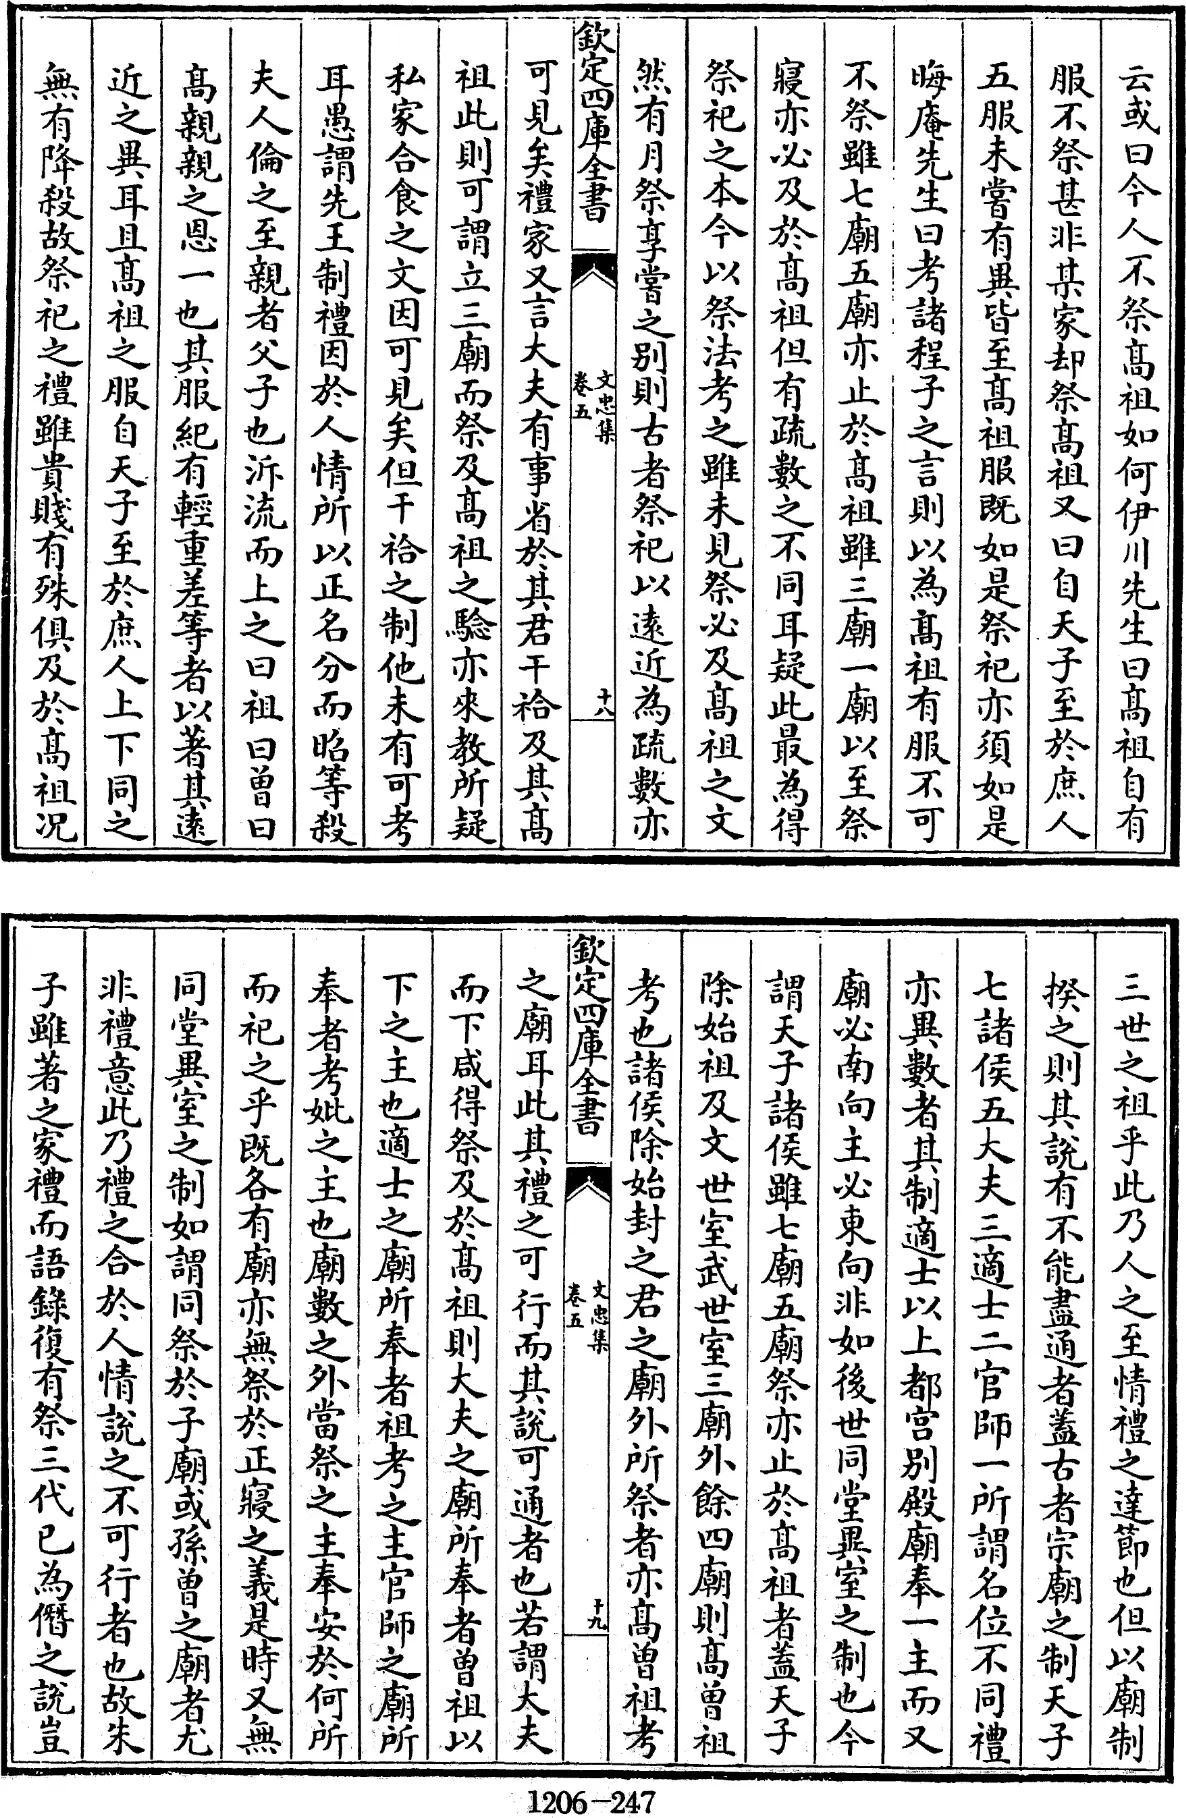 云或曰今人不祭髙祖如何伊川先生曰髙祖自有
服不祭甚非某家却祭髙祖又曰自天子至於庶人
五服未嘗有異皆至髙祖服既如是祭祀亦須如是
晦庵先生曰考諸程子之言則以為髙祖有服不可
不祭雖七廟五廟亦止於髙祖雖三廟一廟以至祭
寢亦必及於髙祖但有疏數之不同耳疑此最為得
祭祀之本今以祭法考之雖未見祭必及髙祖之文
然有月祭享嘗之别則古者祭祀以遠近為疏數亦
欽定四庫全書
文忠集
卷五
十八
可見矣禮家又言大夫有事省於其君干祫及其髙
祖此則可謂立三廟而祭及髙祖之驗亦來教所疑
私家合食之文因可見矣但干祫之制他未有可考
耳愚謂先王制禮因於人情所以正名分而昭等殺
夫人倫之至親者父子也泝流而上之曰祖曰曽曰
髙親親之恩一也其服紀有輕重差等者以著其遠
近之異耳且髙祖之服自天子至於庶人上下同之
無有降殺故祭祀之禮雖貴賤有殊俱及於髙祖况
三世之祖乎此乃人之至情禮之達節也但以廟制
揆之則其說有不能盡通者蓋古者宗廟之制天子
七諸侯五大夫三適士二官師一所謂名位不同禮
亦異數者其制適士以上都宫别殿廟奉一主而又
廟必南向主必東向非如後世同堂異室之制也今
謂天子諸侯雖七廟五廟祭亦止於髙祖者蓋天子
除始祖及文世室武世室三廟外餘四廟則髙曽祖
考也諸侯除始封之君之廟外所祭者亦髙曽祖考
欽定四庫全書
文忠集
卷五
十九
之廟耳此其禮之可行而其說可通者也若謂大夫
而下咸得祭及於髙祖則大夫之廟所奉者曽祖以
下之主也適士之廟所奉者祖考之主官師之廟所
奉者考妣之主也廟數之外當祭之主奉安於何所
而祀之乎既各有廟亦無祭於正寢之義是時又無
同堂異室之制如謂同祭於子廟或孫曽之廟者尤
非禮意此乃禮之合於人情說之不可行者也故朱
子雖著之家禮而語錄復有祭三代已為僭之說豈
1206-247